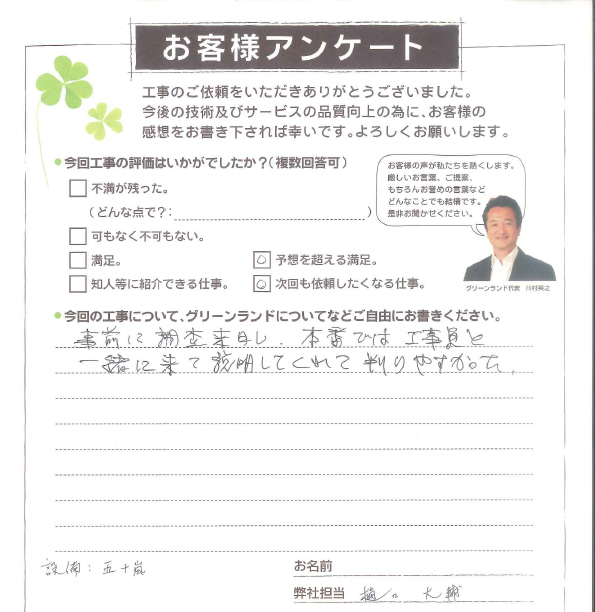 お客様アンケート
工事のご依頼をいただきありがとうございました。
今後の技術及びサービスの品質向上の為に、お客様の
感想をお書き下されば幸いです。よろしくお願いします。
●今回工事の評価はいかがでしたか？(複数回答可)
お客様の声が私たちを熱くします。
厳しいお言葉、ご提案、
もちろんお誉めの言葉など
どんなことでも結構です。
是非お聞かせください。
グリーンランド代表 川村英之
不満が残った。
(どんな点で？：)
可もなく不可もない。
満足。
○ 予想を超える満足。
知人等に紹介できる仕事。
○ 次回も依頼したくなる仕事。
●今回の工事について、グリーンランドについてなどご自由にお書きください。
事前に調査来日し、本番では工事員と
一緒に来て説明してくれて判りやすかった。
設備：五十嵐
お名前
弊社担当 樋口 大輔